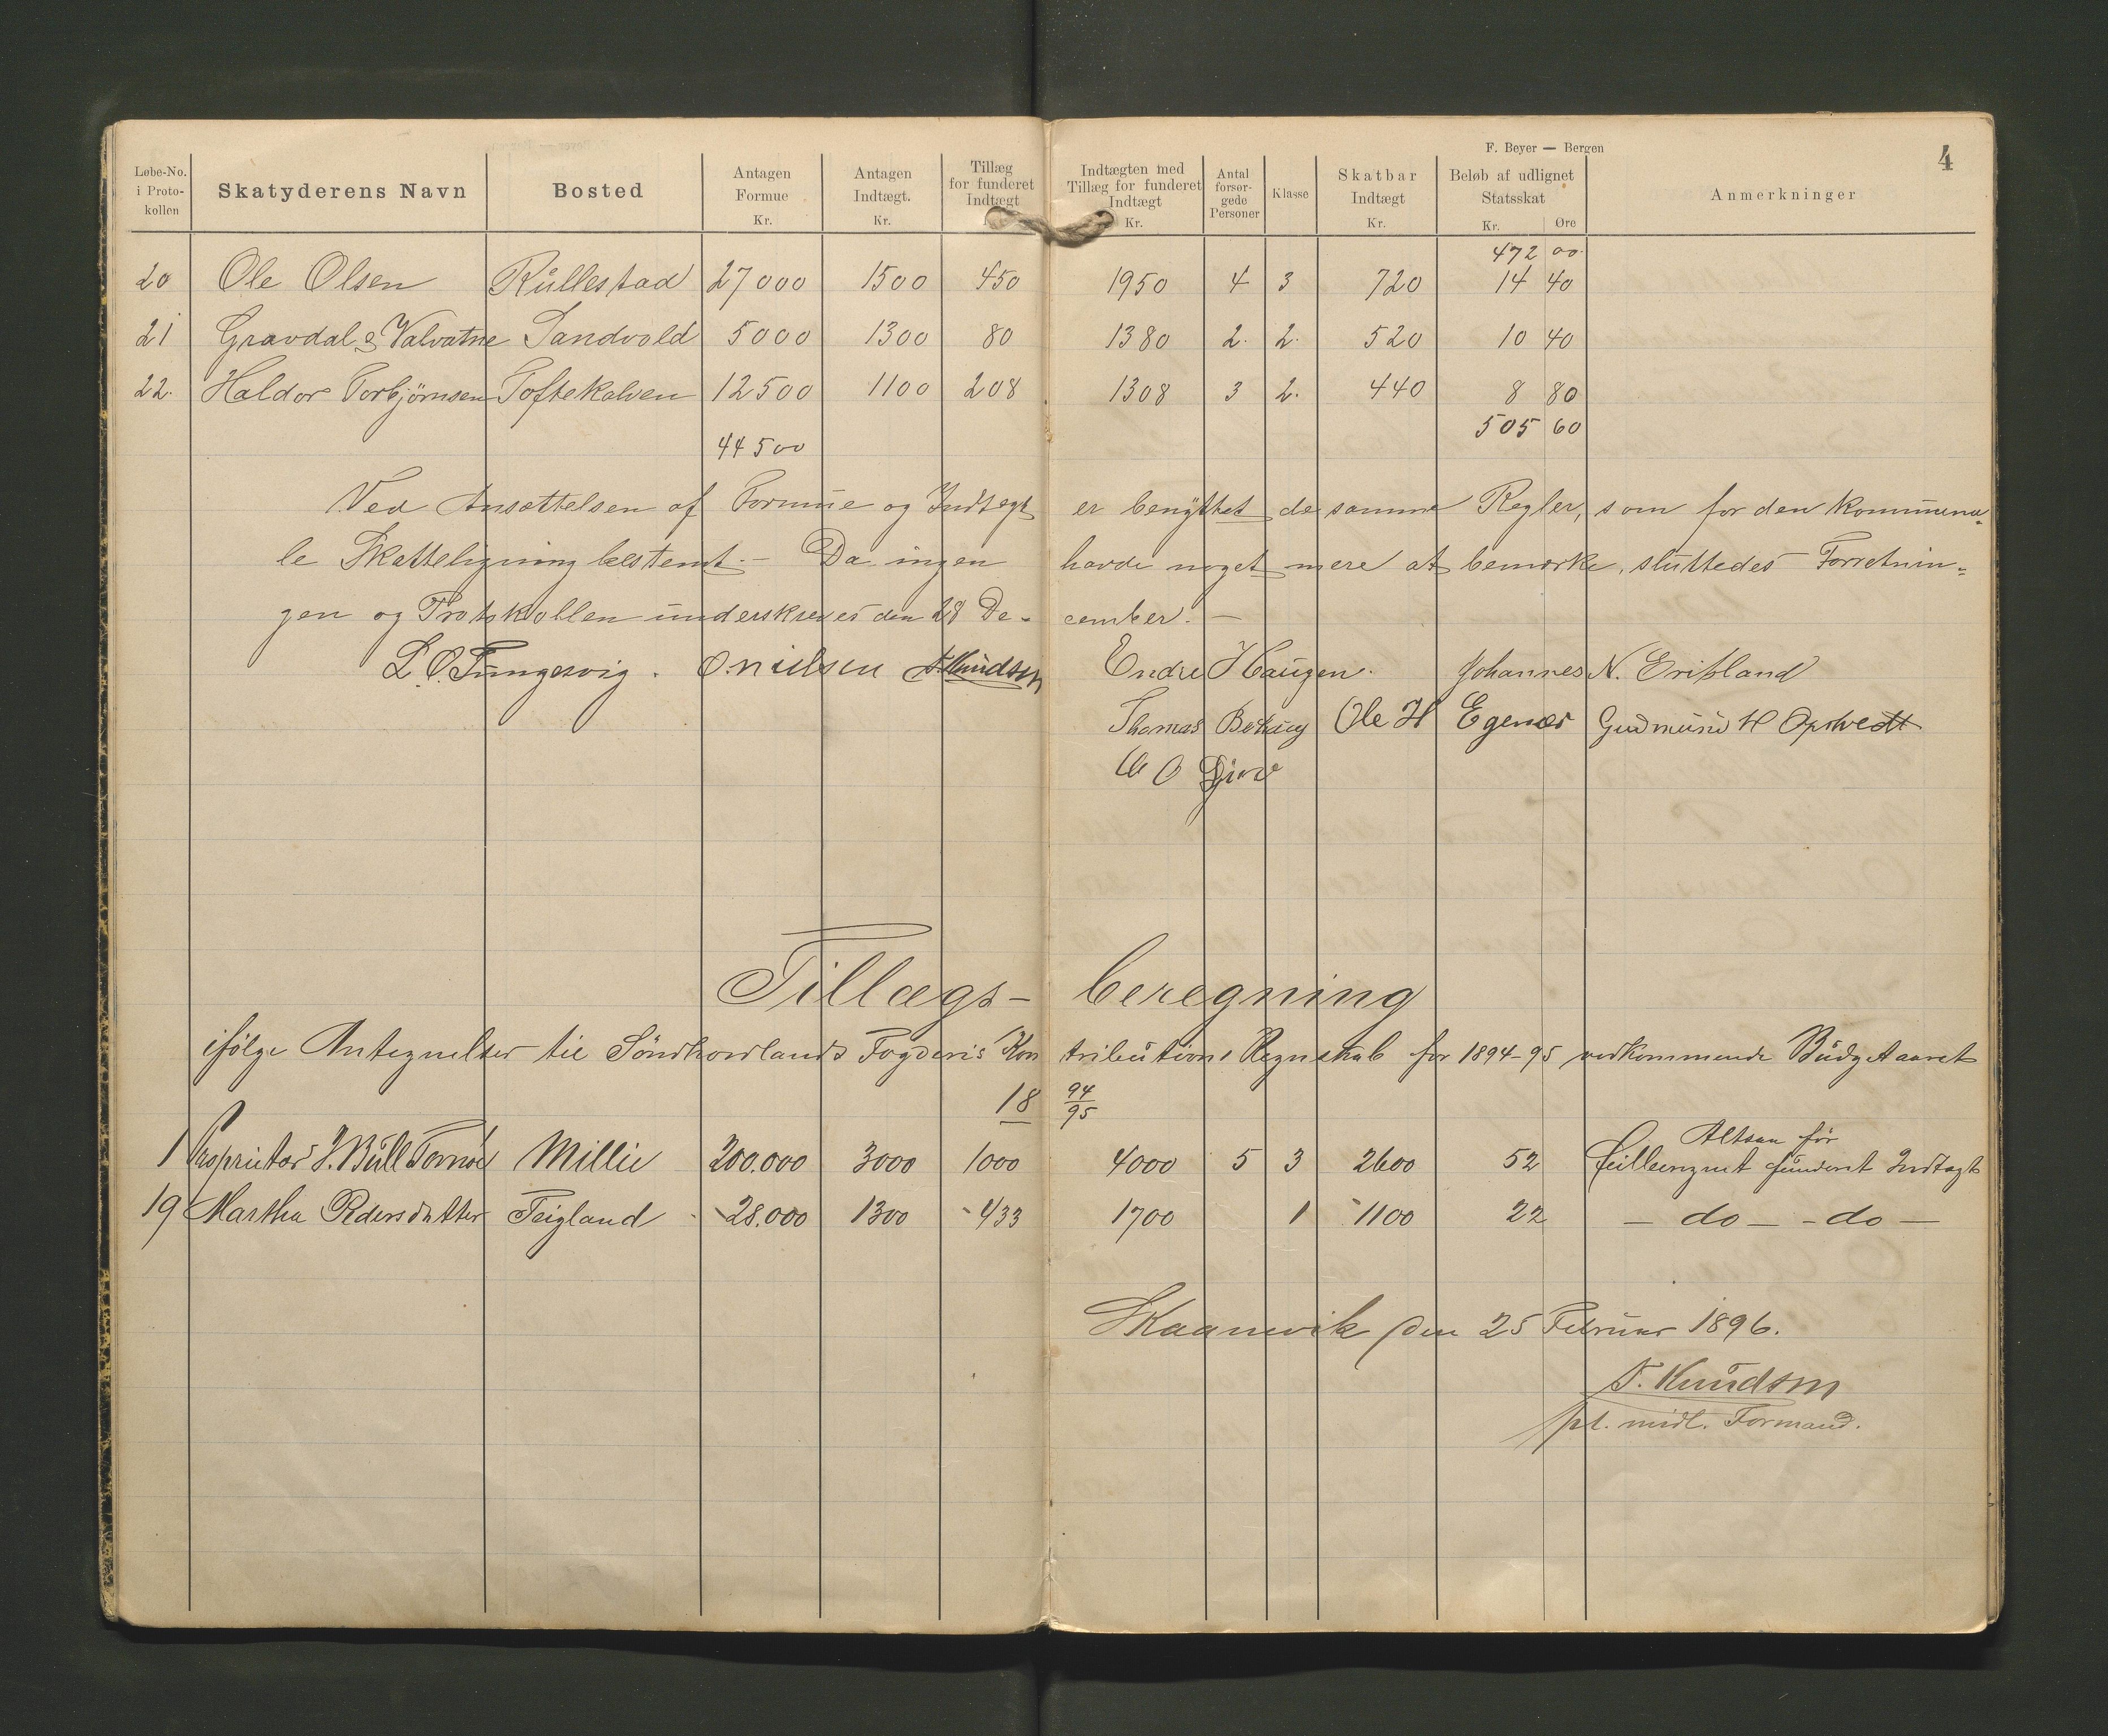 F. Beyer — Bergen
4
Løbe-No. i Proto- kollen | Skatyderens Navn | Bosted | Antagen Formue Kr. | Antagen Indtægt. Kr. | Tillæg for funderet Indtægt | Indtægten med Tillæg for funderet Indtægt Kr. | Antal forsør- gede Personer | Klasse | Skatbar Indtægt Kr. | Beløb af udlignet Statsskat Kr. Øre | Anmerkninger
472 00
20 Ole Olsen Rullestad 27000 1500 450 1950 4 3 720 14 40
21 Gravdal & Valvatne Sandvold 5000 1300 80 1380 2. 2. 520 10 40
22. Haldor Torbjørnsen Toftekalven 12500 1100 208 1308 3 2. 440 8 80
505 60
44500
Ved Ansættelsen af Formue og Indtægt er benyttet de samme Regler, som for den kommuna-
le Skatteligning bestemt. — Da ingen havde noget mere at bemærke, sluttedes Forretnin-
gen og Protokollen underskreves den 28 De- cember. —
L. O. Tungesvig. O. Nielsen T. Knudsen Endre Haugen. Johannes N. Eribland
Thomas Ole H Egenæs Gudmund H Opstvedt
O
Tillægs- beregning
ifølge Antegnelser til Søndhordlands Fogderis Kon tributions Regnskab for 1894-95 vedkommende Budgetaaret
18 94/95
Altsaa før
1 Proprietær J. Büll Tornøe Millie 200.000 3000 1000 4000 5 3 2600 52 feilberegnet funderet Indtægt
19 Martha Pedersdatter Teigland 28.000 1300 433 1700 1 1100 22 — do — - do —
Skaanevik den 25 Februar 1896.
T. Knudsen
pt. midl. Formand.